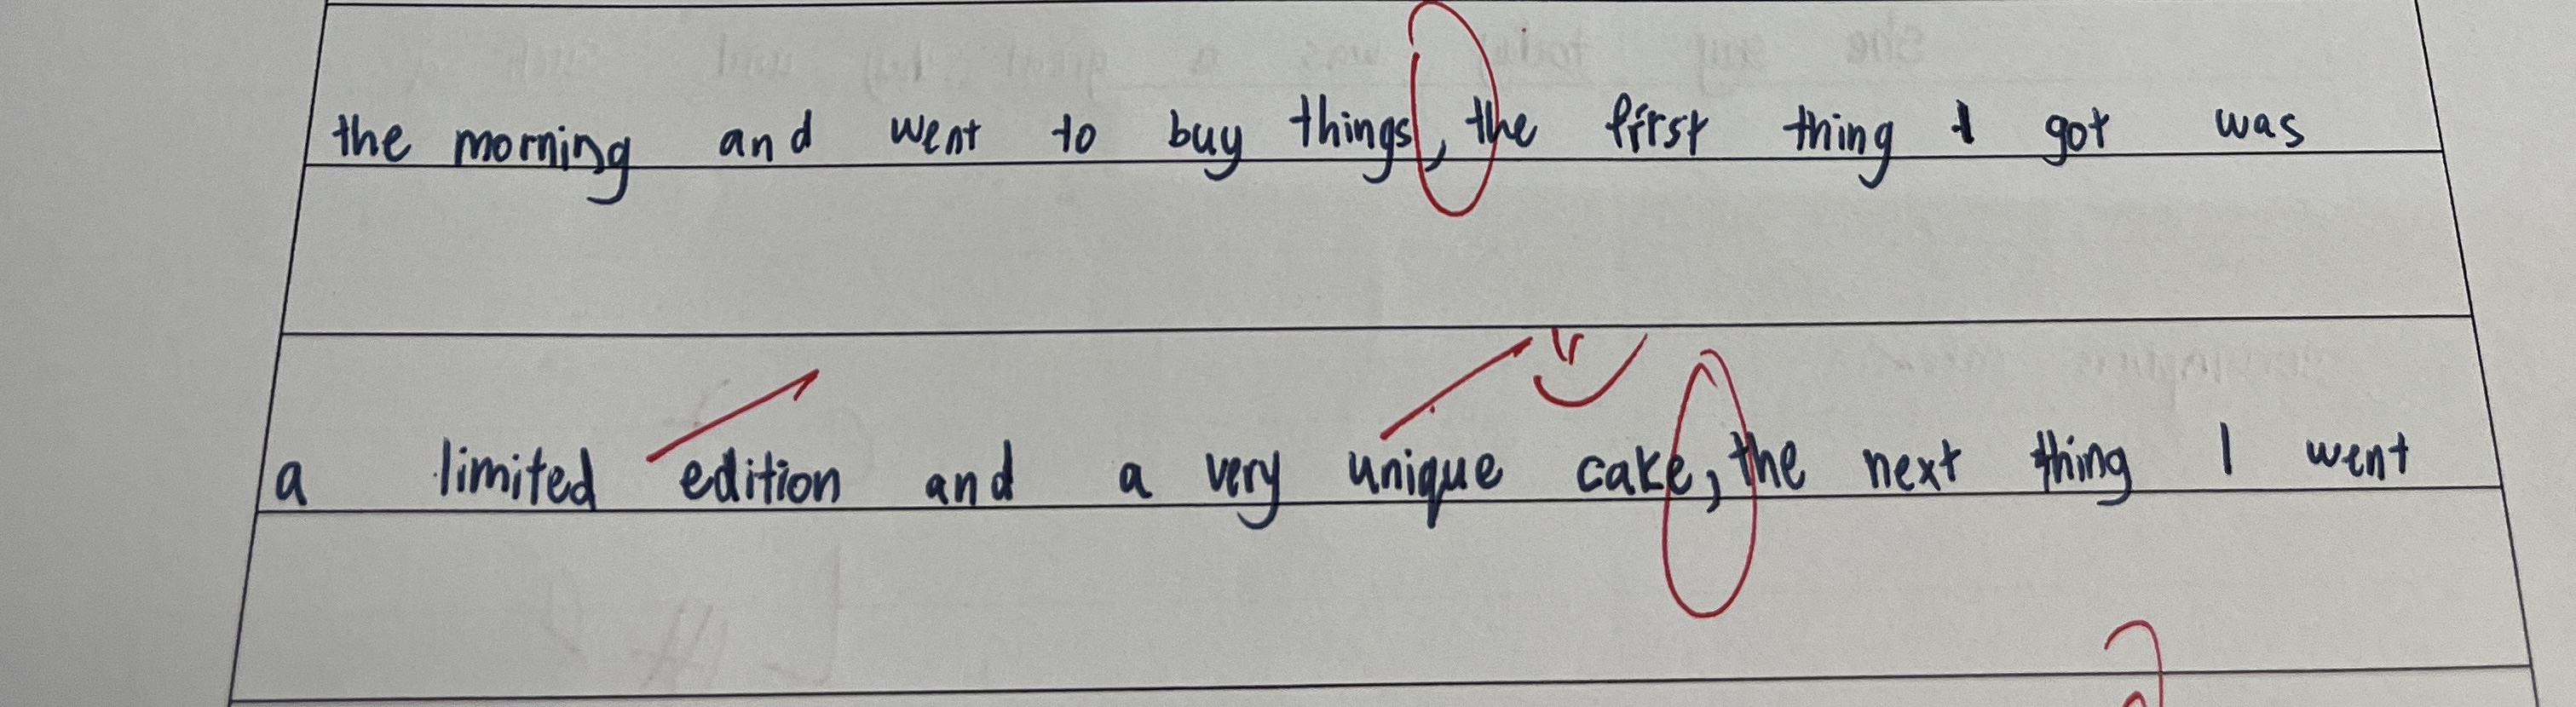 the morning and went to buy things, the first thing I got was
a limited edition and a very unique cake, the next thing I went